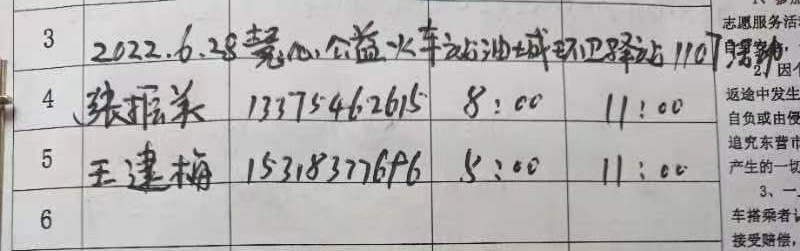 3 2022.6.28慧心公益火车站油城环卫驿站1107活动
4 张振美 13375462615 8:00 11:00
5 王建梅 15318377696 8:00 11:00
6
志愿服务活
2、因个
返途中发生
自负或由侵
追究东营市
产生的一切
3、一
车搭乘者认
接受赔偿,